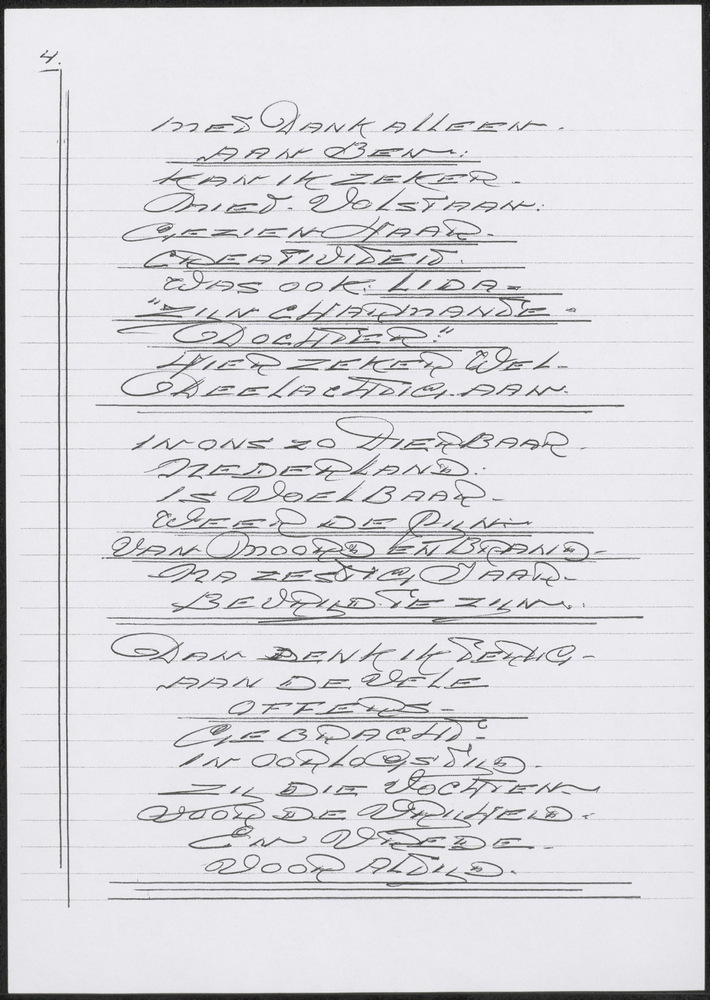 4.
MET DANK ALLEEN.
AAN BEN:
KAN IK ZEKER.
NIET. VOLSTAAN:
GEZIEN HAAR.
CREATIVITEIT.
WAS OOK: LIDA =
"ZIJN CHARMANTE =
DOCHTER."
HIER ZEKER WEL-
DEELACHTIG. AAN.
IN ONS ZO DIERBAAR.
NEDERLAND:
IS VOELBAAR-
WEER DE PIJN
VAN MOORD EN BRAND-
NA ZESTIG JAAR-
BEVRIJD TE ZIJN.
DAN DENK IK TERUG-
AAN DE VELE
OFFERS-
GEBRACHT:
IN OORLOGSTIJD.
ZIJ DIE VOCHTEN
VOOR DE VRIJHEID.
EN VREDE.
VOOR ALTIJD.